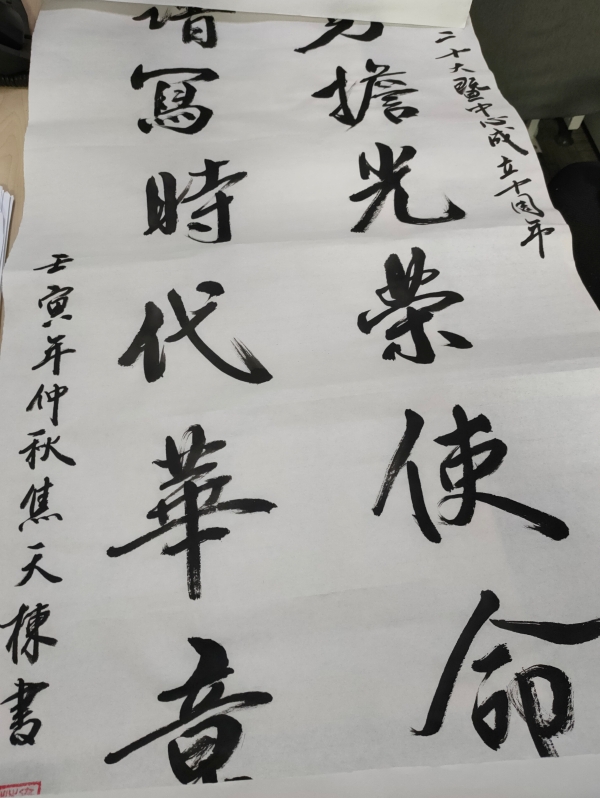 二十大暨中心成立十周年
擔光榮使命
寫時代華章
壬寅年仲秋焦天棟書